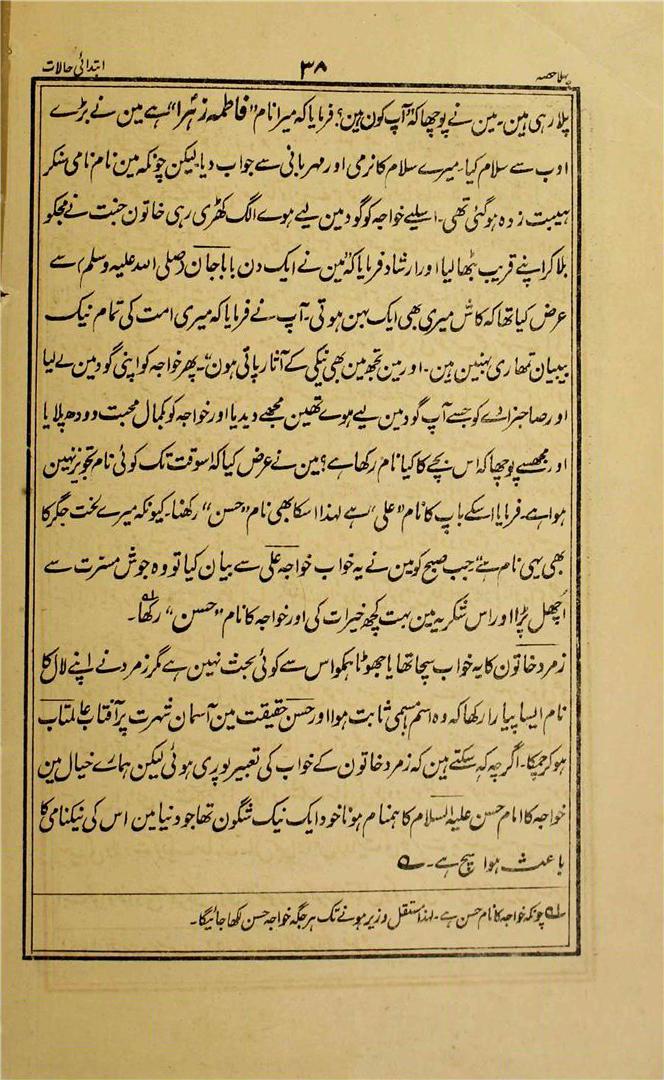 پہلا حصہ ۳۸ ابتدائی حالات
پلا رہی ہین۔ مین نے پوچھا کہ "آپ کون ہین؟ فرمایا کہ میرا نام "فاطمہ زہرا" ہے مین نے بڑے
ادب سے سلام کیا۔ میرے سلام کا نرمی اور مہربانی سے جواب دیا۔ لیکن چونکہ مین نام نامی سنکر
ہیبت زدہ ہوگئی تھی۔ اسلیے خواجہ کو گود مین لیے ہوے الگ کھڑی رہی خاتون جنت نے مجکو
بلا کر اپنے قریب بٹھا لیا اور ارشاد فرمایا کہ "مین نے ایک دن باباجان (صلی اللہ علیہ وسلم) سے
عرض کیا تھا کہ کاش میری بھی ایک بہن ہوتی۔ آپ نے فرمایا کہ میری امت کی تمام نیک
بیبیان تمھاری بہنین ہین۔ اور مین تجھ مین بھی نیکی کے آثار پاتی ہون"۔ پھر خواجہ کو اپنی گود مین لے لیا
اور صاحبزادے کو جسے آپ گود مین لیے ہوے تھین مجھے دیدیا اور خواجہ کو بکمال محبت دودھ پلایا
اور مجھسے پوچھا کہ اس بچے کا کیا نام رکھا ہے؟ مین نے عرض کیا کہ اسوقت تک کوئی نام تجویز نہین
ہوا ہے۔ فرمایا اسکے باپ کا نام "علی" ہے لہذا اسکا بھی نام "حسن" رکھنا۔ کیونکہ میرے لخت جگر کا
بھی یہی نام ہے" جب صبح کو مین نے یہ خواب خواجہ علی سے بیان کیا تو وہ جوش مسرت سے
اُچھل پڑا اور اس شکریہ مین بہت کچھ خیرات کی اور خواجہ کا نام "حسن" رکھا۔ ؎۱
زمرد خاتون کا یہ خواب سچا تھا یا جھوٹا ہمکو اس سے کوئی بحث نہین ہے مگر زمرد نے اپنے لال کا
نام ایسا پیارا رکھا کہ وہ اسم بامسمی ثابت ہوا اور حسن حقیقت مین آسمان شہرت پر آفتاب عالمتاب
ہو کر چمکا۔ اگرچہ کہہ سکتے ہین کہ زمرد خاتون کے خواب کی تعبیر پوری ہوئی لیکن ہمارے خیال مین
خواجہ کا امام حسن علیہ السلام کا ہمنام ہونا خود ایک نیک شگون تھا جو دنیا مین اس کی نیکنامی کا
باعث ہوا سچ ہے۔ ؎
؎۱ چونکہ خواجہ کا نام حسن ہے۔ لہذا مستقل وزیر ہونے تک ہر جگہ خواجہ حسن لکھا جائیگا۔